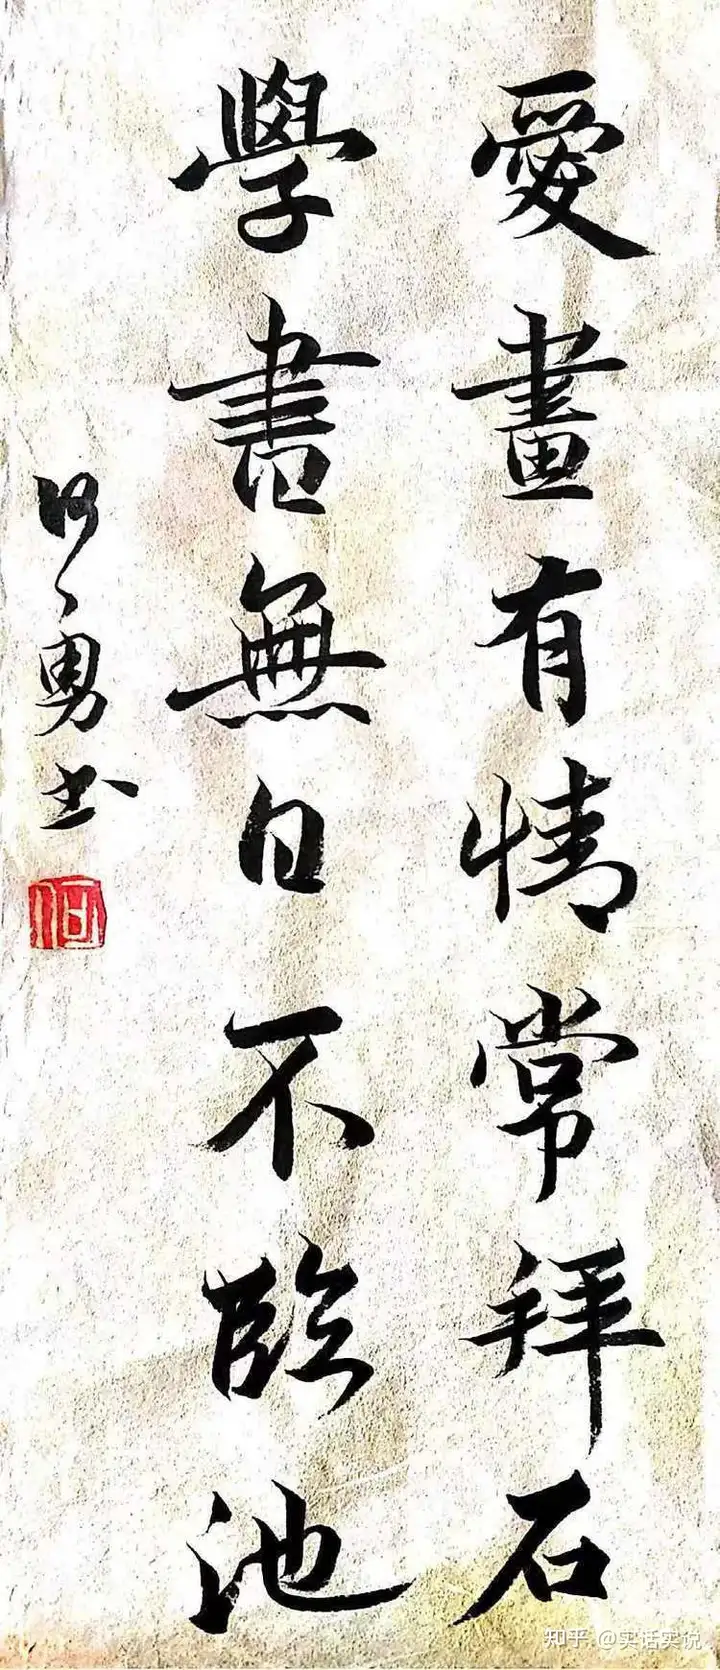 愛畫有情常拜石
學書無日不臨池
勇书
知乎 @实话实说